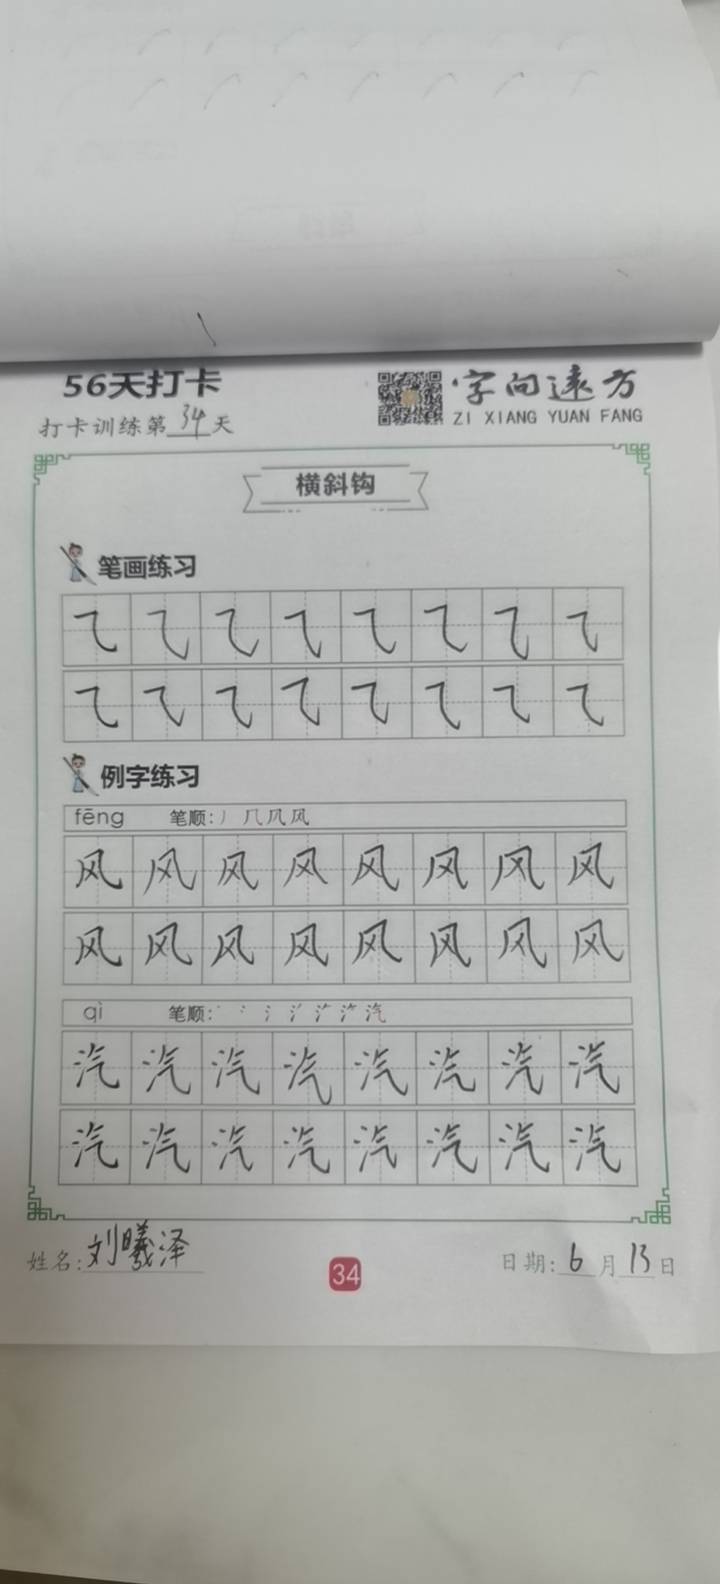 56天打卡
字向远方
打卡训练第34天
ZI XIANG YUAN FANG
横斜钩
笔画练习
⺄⺄⺄⺄⺄⺄⺄⺄
⺄⺄⺄⺄⺄⺄⺄⺄
例字练习
fēng 笔顺:丿 几 凡 风
风风风风风风风风
风风风风风风风风
qì 笔顺: 汽
汽汽汽汽汽汽汽汽
汽汽汽汽汽汽汽汽
姓名:刘曦泽
34
日期:6月13日